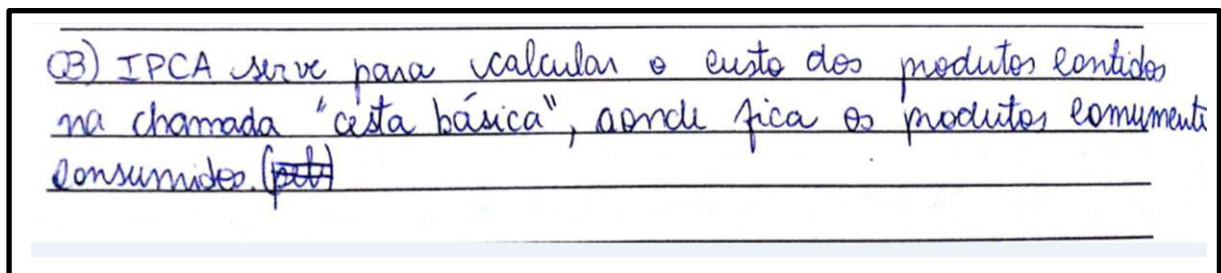 Q3) IPCA serve para calcular o custo dos produtos contidos
na chamada "césta básica", aonde fica os produtos comumente
consumidos.